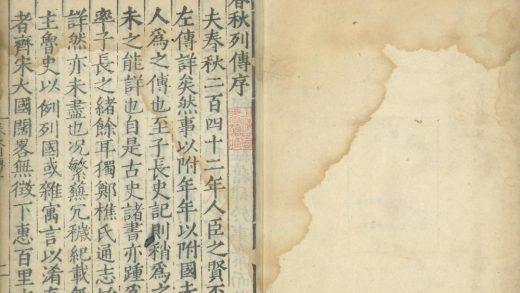 春秋列傳序
夫春秋二百四十二年人臣之賢不
左傳詳矣然事以附年年以附國
人為之傳也至子長史記則稍為之
未之能詳也自是古史諸書亦踵
率子長之緒餘耳獨鄭樵氏通志
詳然亦未盡也況繁蕪冗穢紀載無
主魯史以例列國或雜寓言以淆
者齊宋大國闊畧無徵下惠百里